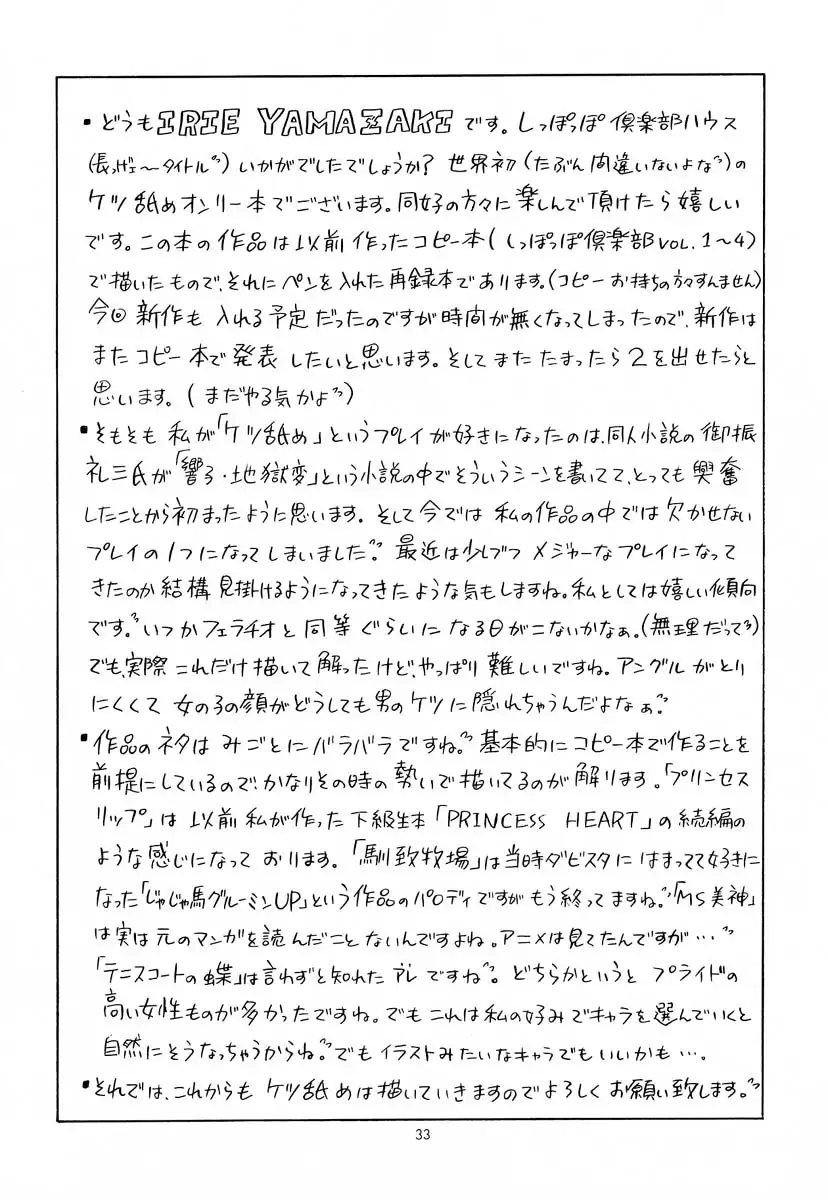 ・どうもIRIE YAMAZAKIです。しっぽっぽ倶楽部ハウス
(長っげェ〜タイトル〃)いかがでしたでしょうか?世界初(たぶん間違いないよな〃)の
ケツ舐めオンリー本でございます。同好の方々に楽しんで頂けたら嬉しい
です。この本の作品は以前作ったコピー本(しっぽっぽ倶楽部VOL.1〜4)
で描いたもので、それにペンを入れた再録本であります。(コピーお持ちの方々すんません)
今回新作も入れる予定だったのですが時間が無くなってしまったので、新作は
またコピー本で発表したいと思います。そしてまたたまったら2を出せたらと
思います。(まだやる気かよ〃)
・そもそも私が「ケツ舐め」というプレイが好きになったのは、同人小説の御振
礼三氏が「響子・地獄変」という小説の中でそういうシーンを書いてて、とっても興奮
したことから初まったように思います。そして今では私の作品の中では欠かせない
プレイの1つになってしまいました〃。最近は少しづつメジャーなプレイになって
きたのか結構見掛けるようになってきたような気もしますね。私としては嬉しい傾向
です。〃いつかフェラチオと同等ぐらいになる日がこないかなぁ。(無理だって〃)
でも、実際これだけ描いて解ったけど、やっぱり難しいですね。アングルがとり
にくくて女の子の顔がどうしても男のケツに隠れちゃうんだよなぁ〃。
・作品のネタはみごとにバラバラですね。〃基本的にコピー本で作ることを
前提にしているので、かなりその時の勢いで描いてるのが解ります。「プリンセス
リップ」は以前私が作った下級生本「PRINCESS HEART」の続編の
ような感じになっております。「馴致牧場」は当時ダビスタにはまってて好きに
なった「じゃじゃ馬グルーミンUP」という作品のパロディですがもう終ってますね。〃「MS美神」
は実は元のマンガを読んだことないんですよね。アニメは見てたんですが…〃
「テニスコートの蝶」は言わずと知れたアレですね〃。どちらかというとプライドの
高い女性ものが多かったですね。でもこれは私の好みでキャラを選んでいくと
自然にそうなっちゃうからね。〃でもイラストみたいなキャラでもいいかも…。
・それでは、これからもケツ舐めは描いていきますのでよろしくお願い致します。〃
33